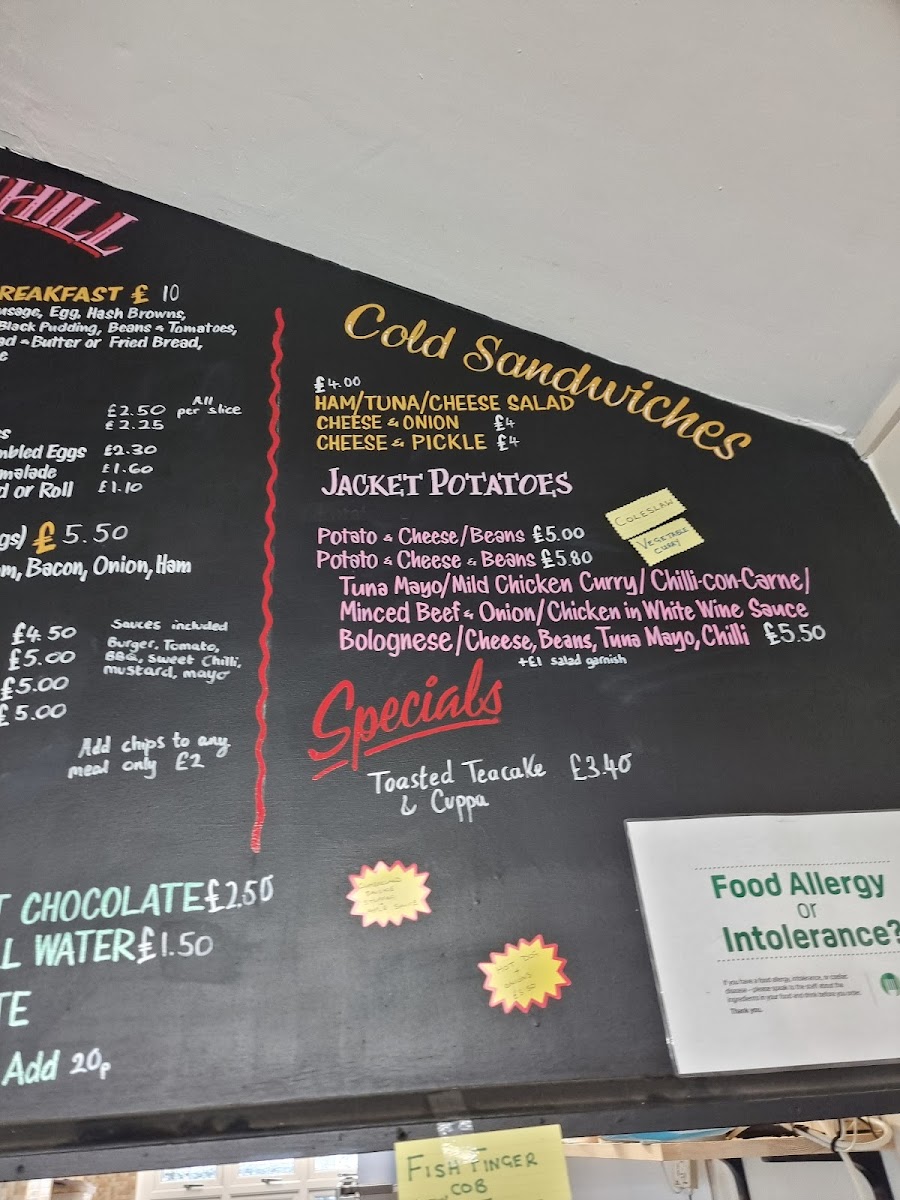 HILL
REAKFAST £ 10
usage, Egg, Hash Browns,
Black Pudding, Beans & Tomatoes,
ad & Butter or Fried Bread,
e
£2.50 All per slice
£2.25
s
mbled Eggs £2.30
malade £1.60
d or Roll £1.10
gs) £5.50
m, Bacon, Onion, Ham
£4.50
£5.00
£5.00
£5.00
Sauces included
Burger, Tomato,
BBQ, Sweet Chilli,
mustard, mayo
Add chips to any
meal only £2
T CHOCOLATE £2.50
L WATER £1.50
TE
Add 20p
Cold Sandwiches
£4.00
HAM/TUNA/CHEESE SALAD
CHEESE & ONION £4
CHEESE & PICKLE £4
JACKET POTATOES
COLESLAW
VEGETABLE
CURRY
Potato & Cheese/Beans £5.00
Potato & Cheese & Beans £5.80
Tuna Mayo/Mild Chicken Curry/Chilli-con-Carne/
Minced Beef & Onion/Chicken in White Wine Sauce
Bolognese/Cheese, Beans, Tuna Mayo, Chilli £5.50
+£1 salad garnish
Specials
Toasted Teacake £3.40
& Cuppa
HOT DOG
+
ONIONS
£5.50
Food Allergy
or
Intolerance?
If you have a food allergy, intolerance, or coeliac
disease – please speak to the staff about the
ingredients in your food and drink before you order.
Thank you.
FISH FINGER
COB